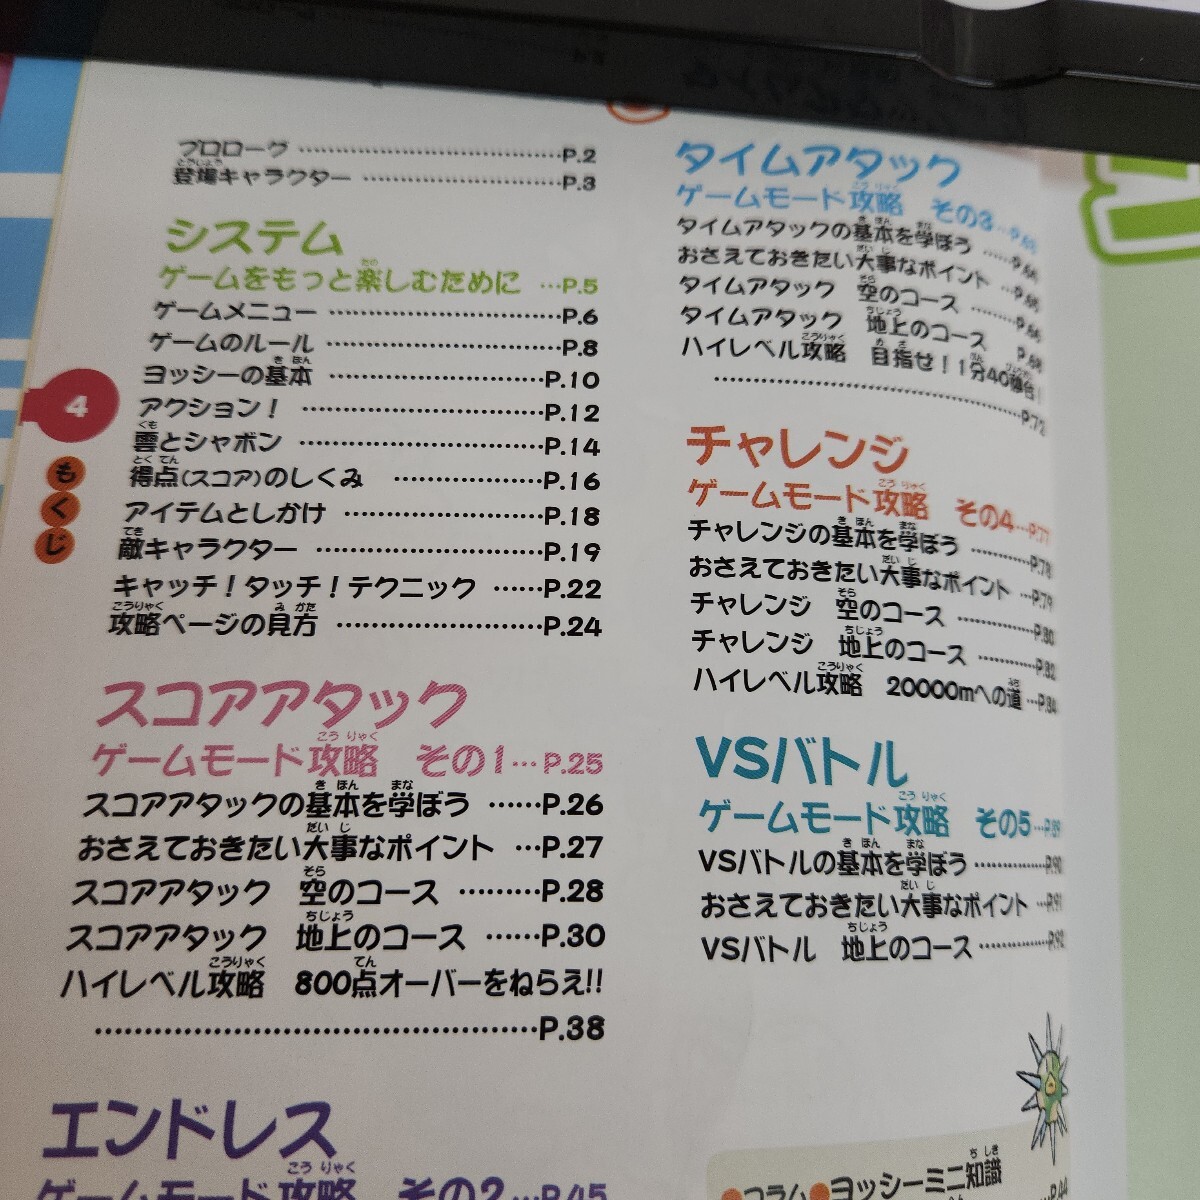 プロローグ ……………………P.2
登場キャラクター ………………P.3
システム
ゲームをもっと楽しむために …P.5
ゲームメニュー ……………………P.6
ゲームのルール ……………………P.8
ヨッシーの基本 …………………P.10
アクション！ ……………………P.12
雲とシャボン ……………………P.14
得点(スコア)のしくみ ……………P.16
アイテムとしかけ ………………P.18
敵キャラクター …………………P.19
キャッチ！タッチ！テクニック ……P.22
攻略ページの見方 ………………P.24
4
もくじ
スコアアタック
ゲームモード攻略 その1…P.25
スコアアタックの基本を学ぼう ……P.26
おさえておきたい大事なポイント …P.27
スコアアタック 空のコース ………P.28
スコアアタック 地上のコース ……P.30
ハイレベル攻略 800点オーバーをねらえ!!
……………………………………P.38
エンドレス
ゲームモード攻略 その2…P.45
タイムアタック
ゲームモード攻略 その3…
タイムアタックの基本を学ぼう ……
おさえておきたい大事なポイント …
タイムアタック 空のコース ………P.66
タイムアタック 地上のコース P.68
ハイレベル攻略 目指せ！1分40秒台！
……………………………P.72
チャレンジ
ゲームモード攻略 その4…P.77
チャレンジの基本を学ぼう …………P.78
おさえておきたい大事なポイント …P.79
チャレンジ 空のコース …………P.80
チャレンジ 地上のコース …………P.82
ハイレベル攻略 20000mへの道 …P.84
VSバトル
ゲームモード攻略 その5…P.89
VSバトルの基本を学ぼう ……………P.90
おさえておきたい大事なポイント …P.91
VSバトル 地上のコース ……………P.92
●コラム●ヨッシーミニ知識
P.44